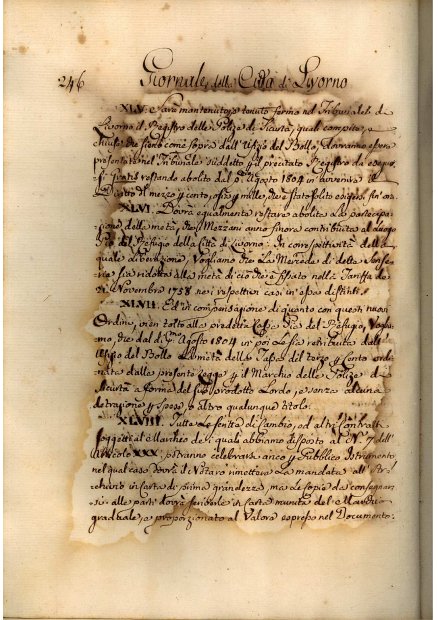 246 Giornale della Città di Livorno
XLV. Sarà mantenuto, e tenuto fermo nel Tribunale di
Livorno il Registro delle Polize di Sicurtà, quali compite, e
chiuse che sieno come sopra dall'Ufizio del Bollo, dovranno essere
presentate nel Tribunale suddetto, il precitato Registro da
gratis restando abolito dal pº Agosto 1804 in avvenire il
Diritto di mezzo per cento, o sia mille, che è stato solito esigersi fin' ora.
XLVI. Dovrà egualmente restare abolita la partecipa-
zione della metà, che i Mezzani anno finora contribuita al Luogo
Pio del Refugio della Città di Livorno: In correspettività della
quale liberazione, Vogliamo che La Mercede delle Senserie
sia ridotta alla metà di ciò che è fissato nella Tariffa de
21 Novembre 1758 nei respettivi casi in essa distinti.
XLVII. Ed in compensazione di quanto con questi nuovi
Ordini, vien tolto alla predetta Casa Pia del Refugio, Voglia-
mo, che dal dì pmo Agosto 1804 in poi Le sia retribuita dall'
Ufizio del Bollo La metà della Tassa del terzo per Cento ordi-
nata dalla presente Legge per il Marchio delle Polize di
Sicurtà a forma del suo prodotto Lordo, e senza alcuna
detrazione per spese, o altro qualunque titolo.
XLVIII. Tutte le Lettere di Cambio, ed altri Contratti
soggetti al Marchio de i quali abbiamo disposto al N. 7 dell'
Articolo XXX: potranno celebrarsi anco per Pubblico Istrumento
nel qual caso dovrà il Notaro rimettere La mandata all' Ar-
chivio in Carta di prima grandezza, ma le copie da consegnar-
si alle parti dovrà scriverle in Carta munita del Marchio
graduale, e proporzionato al Valore espresso nel Documento.